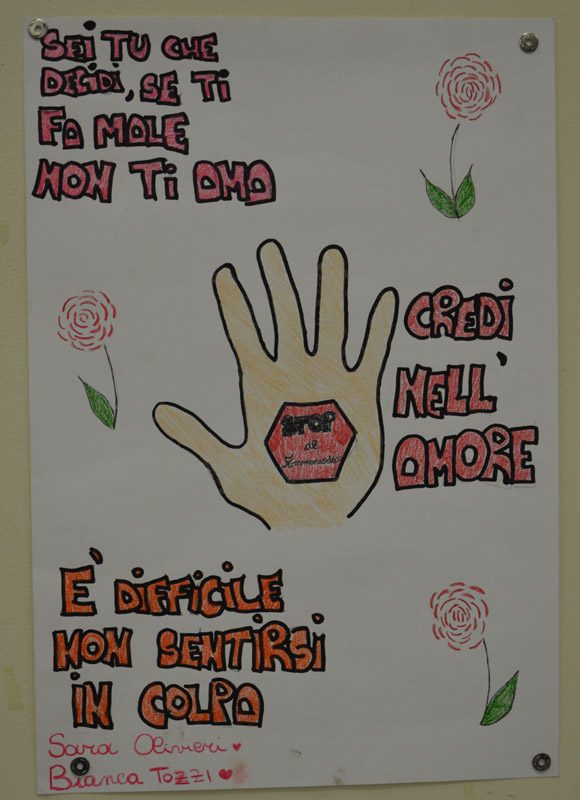 SEI TU CHE
DECIDI, SE TI
FA MALE
NON TI AMA
CREDI
NELL'
AMORE
STOP
al
Femminicidio
È DIFFICILE
NON SENTIRSI
IN COLPA
Sara Olivieri
Bianca Tozzi